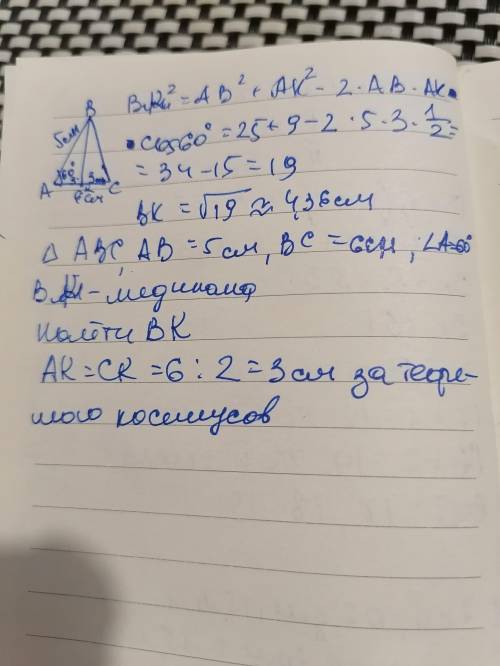 B
5см
A
60°
3см
C
K
6см
BK² = AB² + AK² - 2 · AB · AK ·
· cos60° = 25 + 9 - 2 · 5 · 3 · 1/2 =
= 34 - 15 = 19
BK = √19 ≈ 4,36 см
Δ ABC, AB = 5 см, BC = 6см, ∠A=60°
BK - медиана
Найти BK
AK = CK = 6 : 2 = 3 см за теоре-
мою косинусов